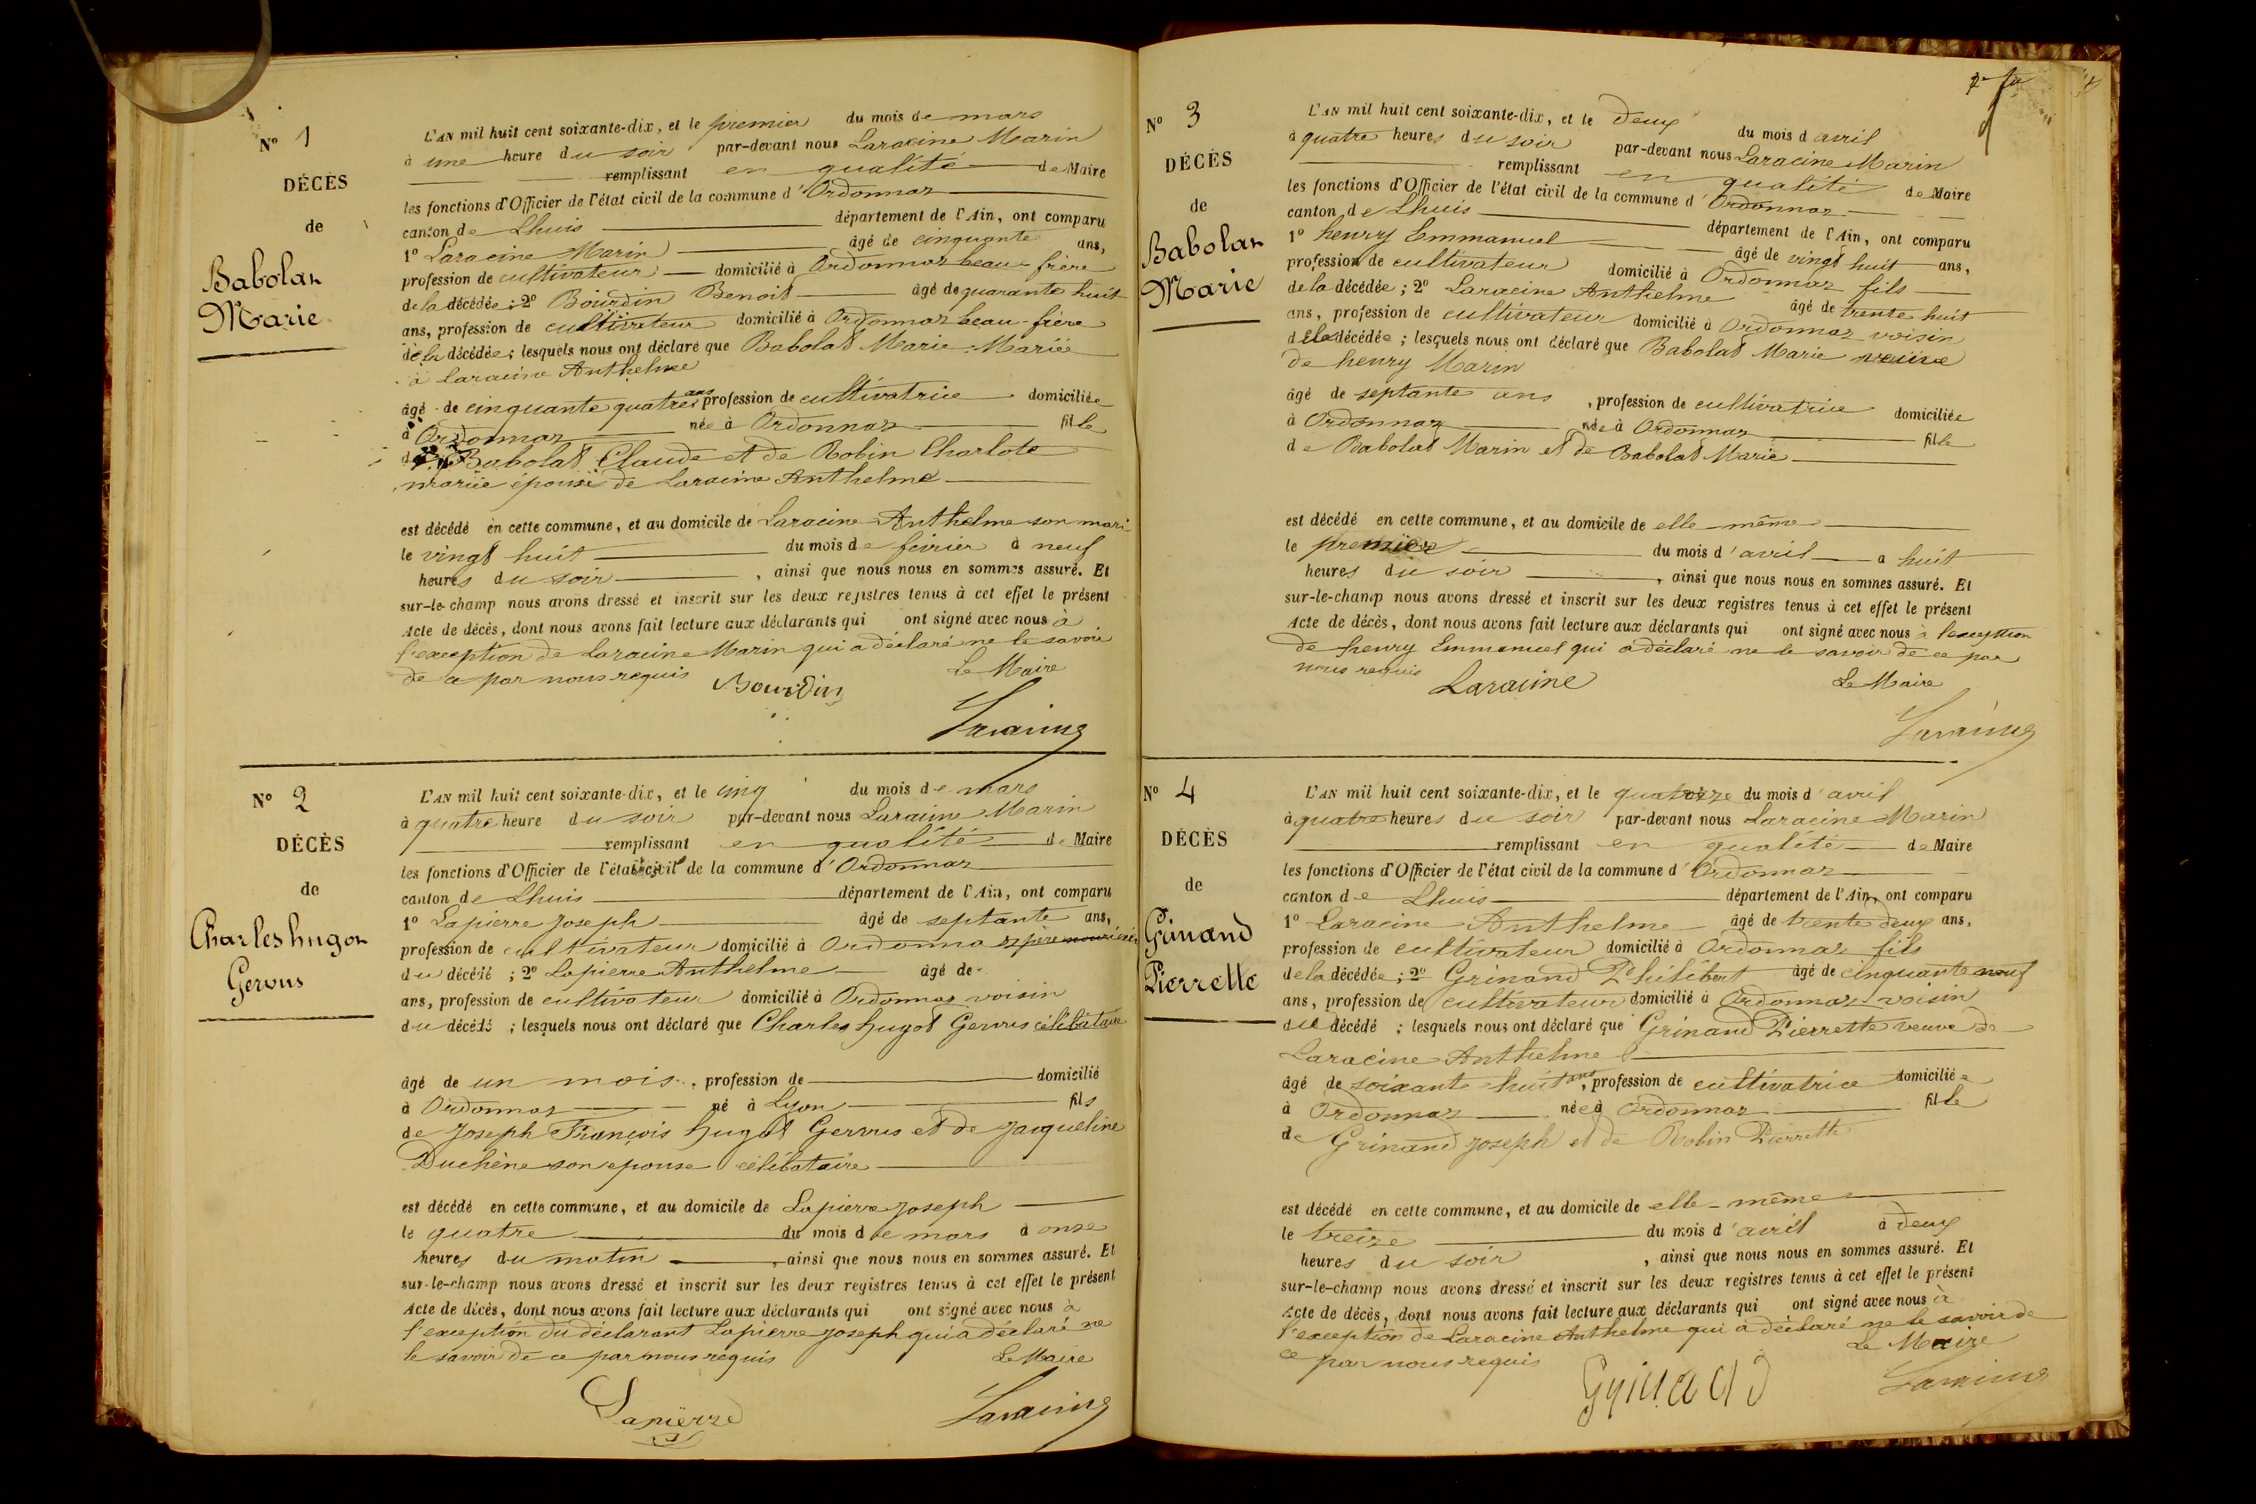 Nº 1
DÉCÈS
de
Babolat
Marie
L'AN mil huit cent soixante-dix, et le premier du mois de mars
à une heure du soir par-devant nous Laracine Marin
remplissant en qualité de Maire
les fonctions d'Officier de l'état civil de la commune d'Ordonnaz
canton de Lhuis département de l'Ain, ont comparu
1º Laracine Marin âgé de cinquante ans,
profession de cultivateur domicilié à Ordonnaz beau-frère
de la décédée; 2º Bourdin Benoit âgé de quarante huit
ans, profession de cultivateur domicilié à Ordonnaz beau-frère
de la décédée; lesquels nous ont déclaré que Babolat Marie Mariée
à Laracine Anthelme
âgé de cinquante quatre ans profession de cultivatrice domiciliée
à Ordonnaz née à Ordonnaz fille
de Babolat Claude et de Robin Charlote
mariée épouse de Laracine Anthelme
est décédé en cette commune, et au domicile de Laracine Anthelme son mari
le vingt huit du mois de février à neuf
heures du soir, ainsi que nous nous en sommes assuré. Et
sur-le-champ nous avons dressé et inscrit sur les deux registres tenus à cet effet le présent
Acte de décès, dont nous avons fait lecture aux déclarants qui ont signé avec nous à
l'exception de Laracine Marin qui a déclaré ne le savoir
de ce par nous requis Le Maire
Bourdin
Laracine
Nº 2
DÉCÈS
de
Charles hugot
Gervus
L'AN mil huit cent soixante-dix, et le cinq du mois de mars
à quatre heure du soir par-devant nous Laracine Marin
remplissant en qualité de Maire
les fonctions d'Officier de l'état civil de la commune d'Ordonnaz
canton de Lhuis département de l'Ain, ont comparu
1º Lapierre Joseph âgé de septante ans,
profession de cultivateur domicilié à Ordonnaz père nourricier
du décédé; 2º Lapierre Anthelme âgé de
ans, profession de cultivateur domicilié à Ordonnaz voisin
du décédé; lesquels nous ont déclaré que Charles hugot Gervus célibataire
âgé de un mois, profession de domicilié
à Ordonnaz né à Lyon fils
de Joseph François hugot Gervus et de Jacqueline
Duchène son epouse célibataire
est décédé en cette commune, et au domicile de Lapierre Joseph
le quatre du mois de mars à onze
heures du matin, ainsi que nous nous en sommes assuré. Et
sur-le-champ nous avons dressé et inscrit sur les deux registres tenus à cet effet le présent
Acte de décès, dont nous avons fait lecture aux déclarants qui ont signé avec nous à
l'exception du déclarant Lapierre Joseph qui a déclaré ne
le savoir de ce par nous requis Le Maire
Lapierre
Laracine
Nº 3
DÉCÈS
de
Babolat
Marie
L'AN mil huit cent soixante-dix, et le deux du mois d'avril
à quatre heures du soir par-devant nous Laracine Marin
remplissant en qualité de Maire
les fonctions d'Officier de l'état civil de la commune d'Ordonnaz
canton de Lhuis département de l'Ain, ont comparu
1º henry Emmanuel âgé de vingt huit ans,
profession de cultivateur domicilié à Ordonnaz fils
de la décédée; 2º Laracine Anthelme âgé de trente huit
ans, profession de cultivateur domicilié à Ordonnaz voisin
de la décédée; lesquels nous ont déclaré que Babolat Marie veuve
de henry Marin
âgé de septante ans, profession de cultivatrice domiciliée
à Ordonnaz née à Ordonnaz fille
de Babolat Marin et de Babolat Marie
est décédé en cette commune, et au domicile de elle-même
le premier du mois d'avril à huit
heures du soir, ainsi que nous nous en sommes assuré. Et
sur-le-champ nous avons dressé et inscrit sur les deux registres tenus à cet effet le présent
Acte de décès, dont nous avons fait lecture aux déclarants qui ont signé avec nous à l'exception
de henry Emmanuel qui a déclaré ne le savoir de ce par
nous requis Le Maire
Laracine
Laracine
Nº 4
DÉCÈS
de
Grinand
Pierrette
L'AN mil huit cent soixante-dix, et le quatorze du mois d'avril
à quatre heures du soir par-devant nous Laracine Marin
remplissant en qualité de Maire
les fonctions d'Officier de l'état civil de la commune d'Ordonnaz
canton de Lhuis département de l'Ain, ont comparu
1º Laracine Anthelme âgé de trente deux ans,
profession de cultivateur domicilié à Ordonnaz fils
de la décédée; 2º Grinand Philibert âgé de cinquante neuf
ans, profession de cultivateur domicilié à Ordonnaz voisin
du décédé; lesquels nous ont déclaré que Grinand Pierrette veuve de
Laracine Anthelme
âgé de soixante-huit ans, profession de cultivatrice domiciliée
à Ordonnaz née à Ordonnaz fille
de Grinand Joseph et de Robin Pierrette
est décédé en cette commune, et au domicile de elle-même
le treize du mois d'avril à deux
heures du soir, ainsi que nous nous en sommes assuré. Et
sur-le-champ nous avons dressé et inscrit sur les deux registres tenus à cet effet le présent
Acte de décès, dont nous avons fait lecture aux déclarants qui ont signé avec nous à
l'exception de Laracine Anthelme qui a déclaré ne le savoir de
ce par nous requis Le Maire
Grinand
Laracine